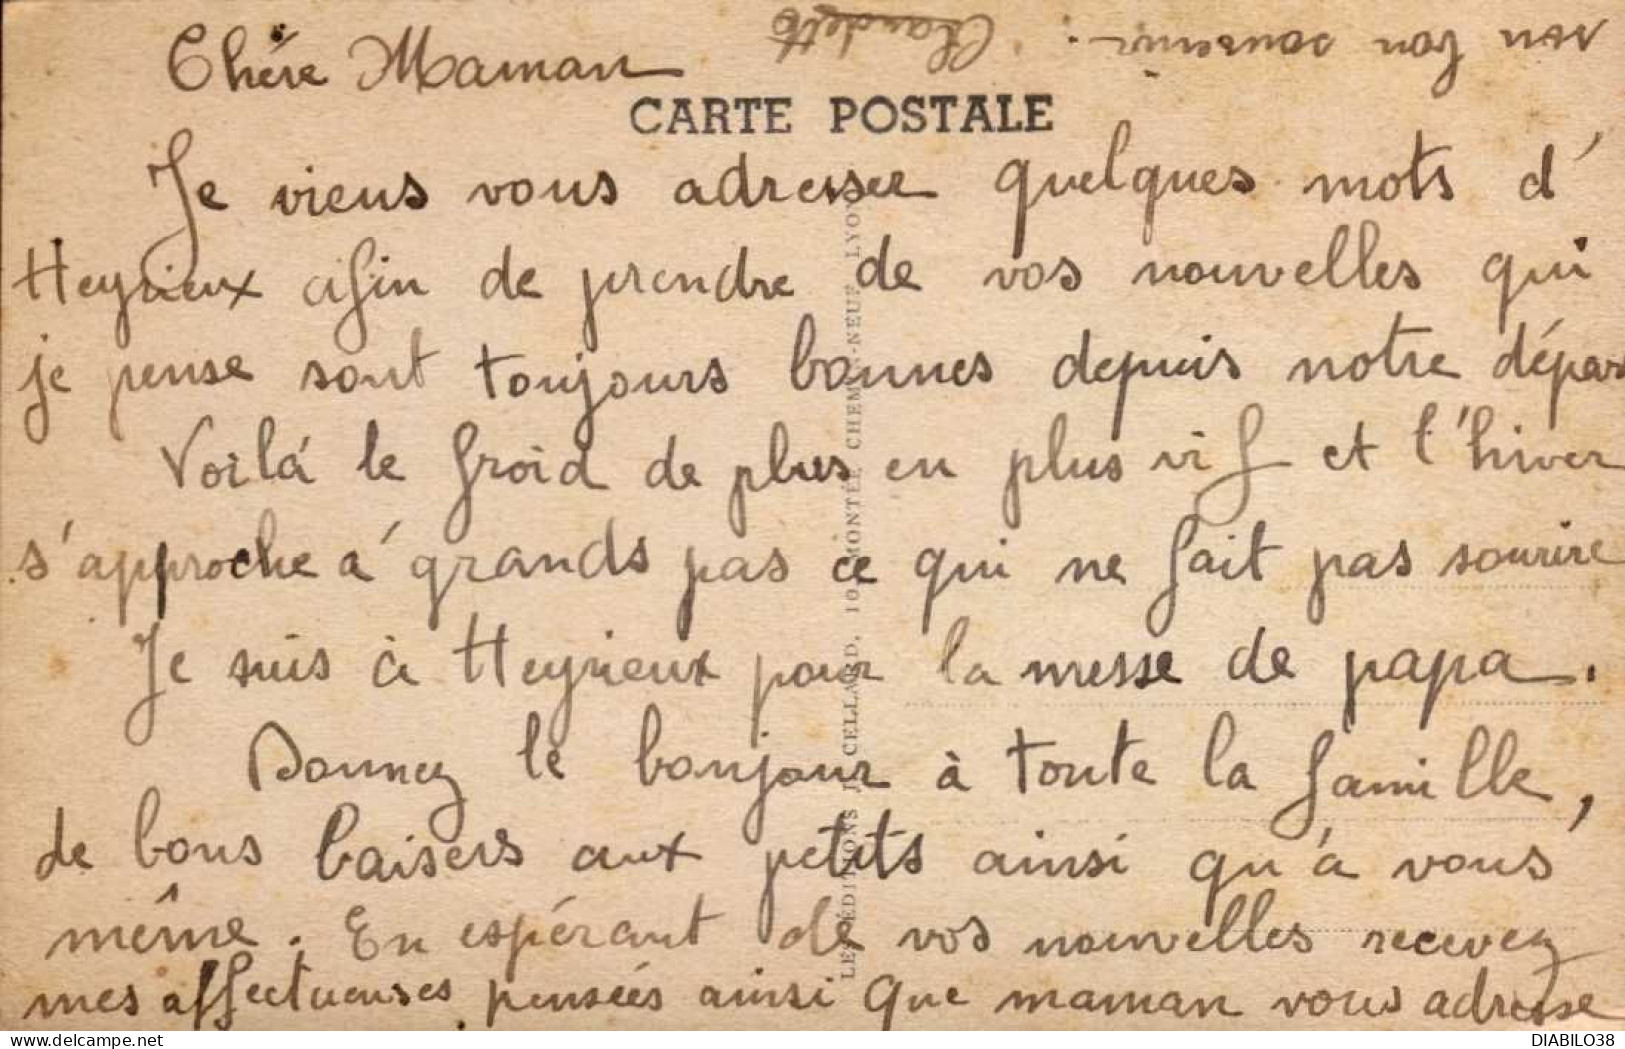 Chére Maman
CARTE POSTALE
Je viens vous adresser quelques mots d'
Heyrieux afin de prendre de vos nouvelles qui
je pense sont toujours bonnes depuis notre dépar
Voilá le froid de plus en plus vif et l'hiver
s'approche á grands pas ce qui ne fait pas sourire
Je suis à Heyrieux pour la messe de papa.
Donnez le bonjour à toute la famille,
de bons baisers aux petits ainsi qu'à vous
même. En espérant de vos nouvelles recevez
mes affectueuses pensées ainsi que maman vous adresse
son bon souvenir. Claudette
LES ÉDITIONS J. CELLARD. 10 MONTÉE CHEMIN-NEUF LYON
DIABILO38
www.delcampe.net